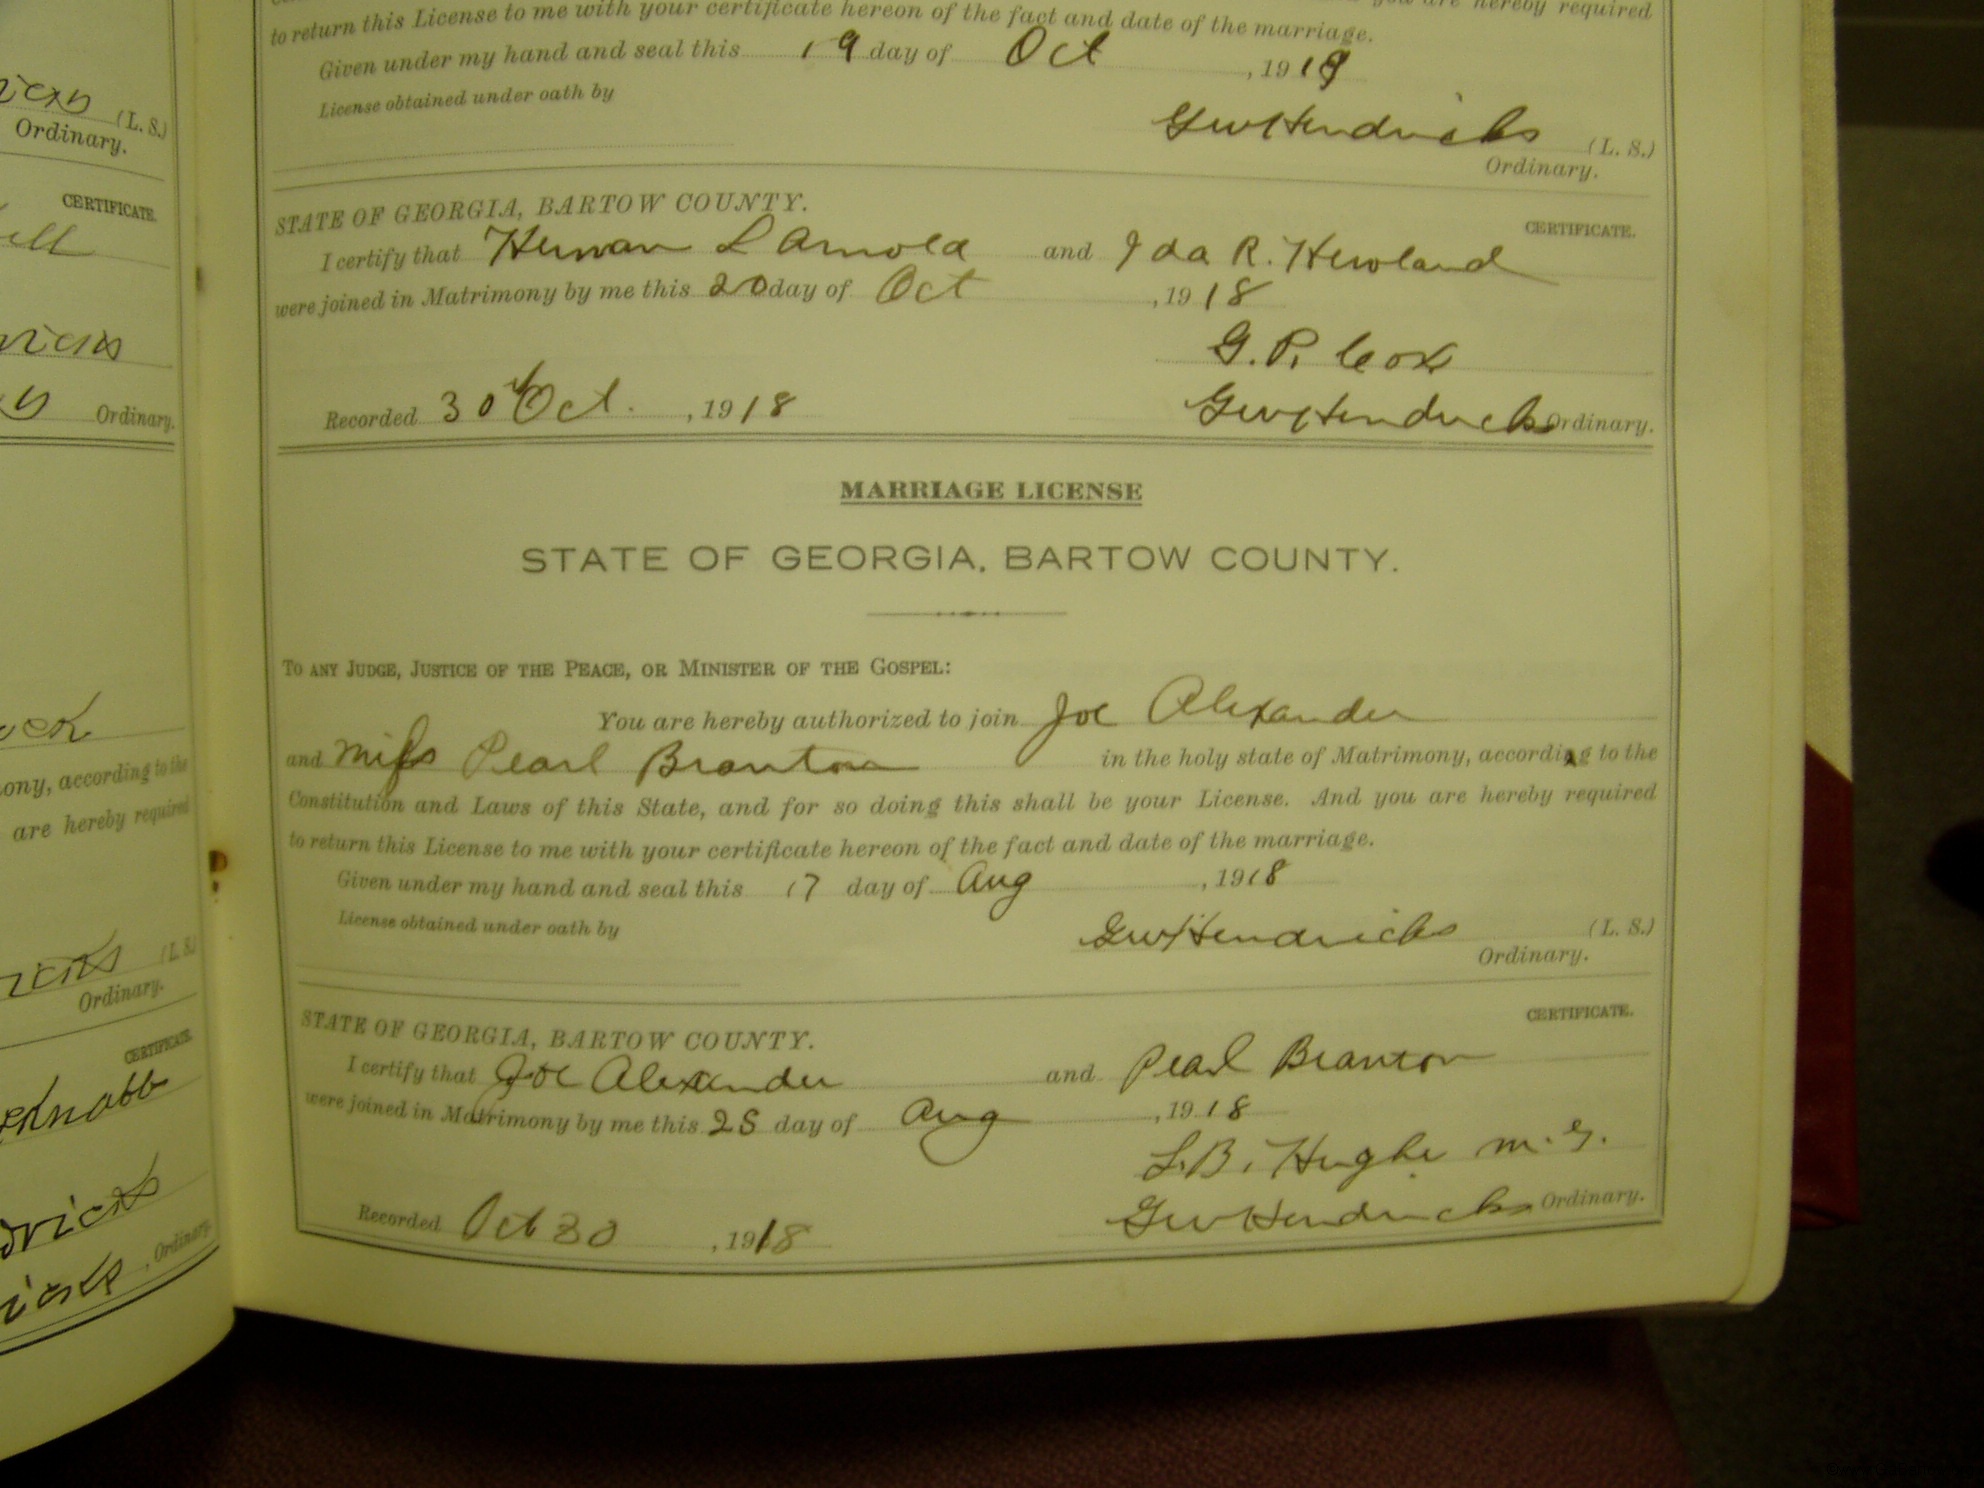 to return this License to me with your certificate hereon of the fact and date of the marriage.
Given under my hand and seal this 19 day of Oct , 1918
License obtained under oath by
GW Hendricks (L. S.)
Ordinary.
STATE OF GEORGIA, BARTOW COUNTY. CERTIFICATE.
I certify that Herman L Arnold and Ida R. Howland
were joined in Matrimony by me this 20 day of Oct , 1918
G. P. Cox
Recorded 30th Oct. , 1918 GW Hendricks Ordinary.
MARRIAGE LICENSE
STATE OF GEORGIA, BARTOW COUNTY.
TO ANY JUDGE, JUSTICE OF THE PEACE, OR MINISTER OF THE GOSPEL:
You are hereby authorized to join Joe Alexander
and Miss Pearl Branton in the holy state of Matrimony, according to the
Constitution and Laws of this State, and for so doing this shall be your License. And you are hereby required
to return this License to me with your certificate hereon of the fact and date of the marriage.
Given under my hand and seal this 17 day of Aug , 1918
License obtained under oath by
GW Hendricks (L. S.)
Ordinary.
STATE OF GEORGIA, BARTOW COUNTY. CERTIFICATE.
I certify that Joe Alexander and Pearl Branton
were joined in Matrimony by me this 25 day of Aug , 1918
L. B. Hughe M. G.
Recorded Oct 30 , 1918 GW Hendricks Ordinary.
(L. S.)
Ordinary.
CERTIFICATE.
Ordinary.
ony, according to the
are hereby required
(L. S.)
Ordinary.
CERTIFICATE.
Ordinary.